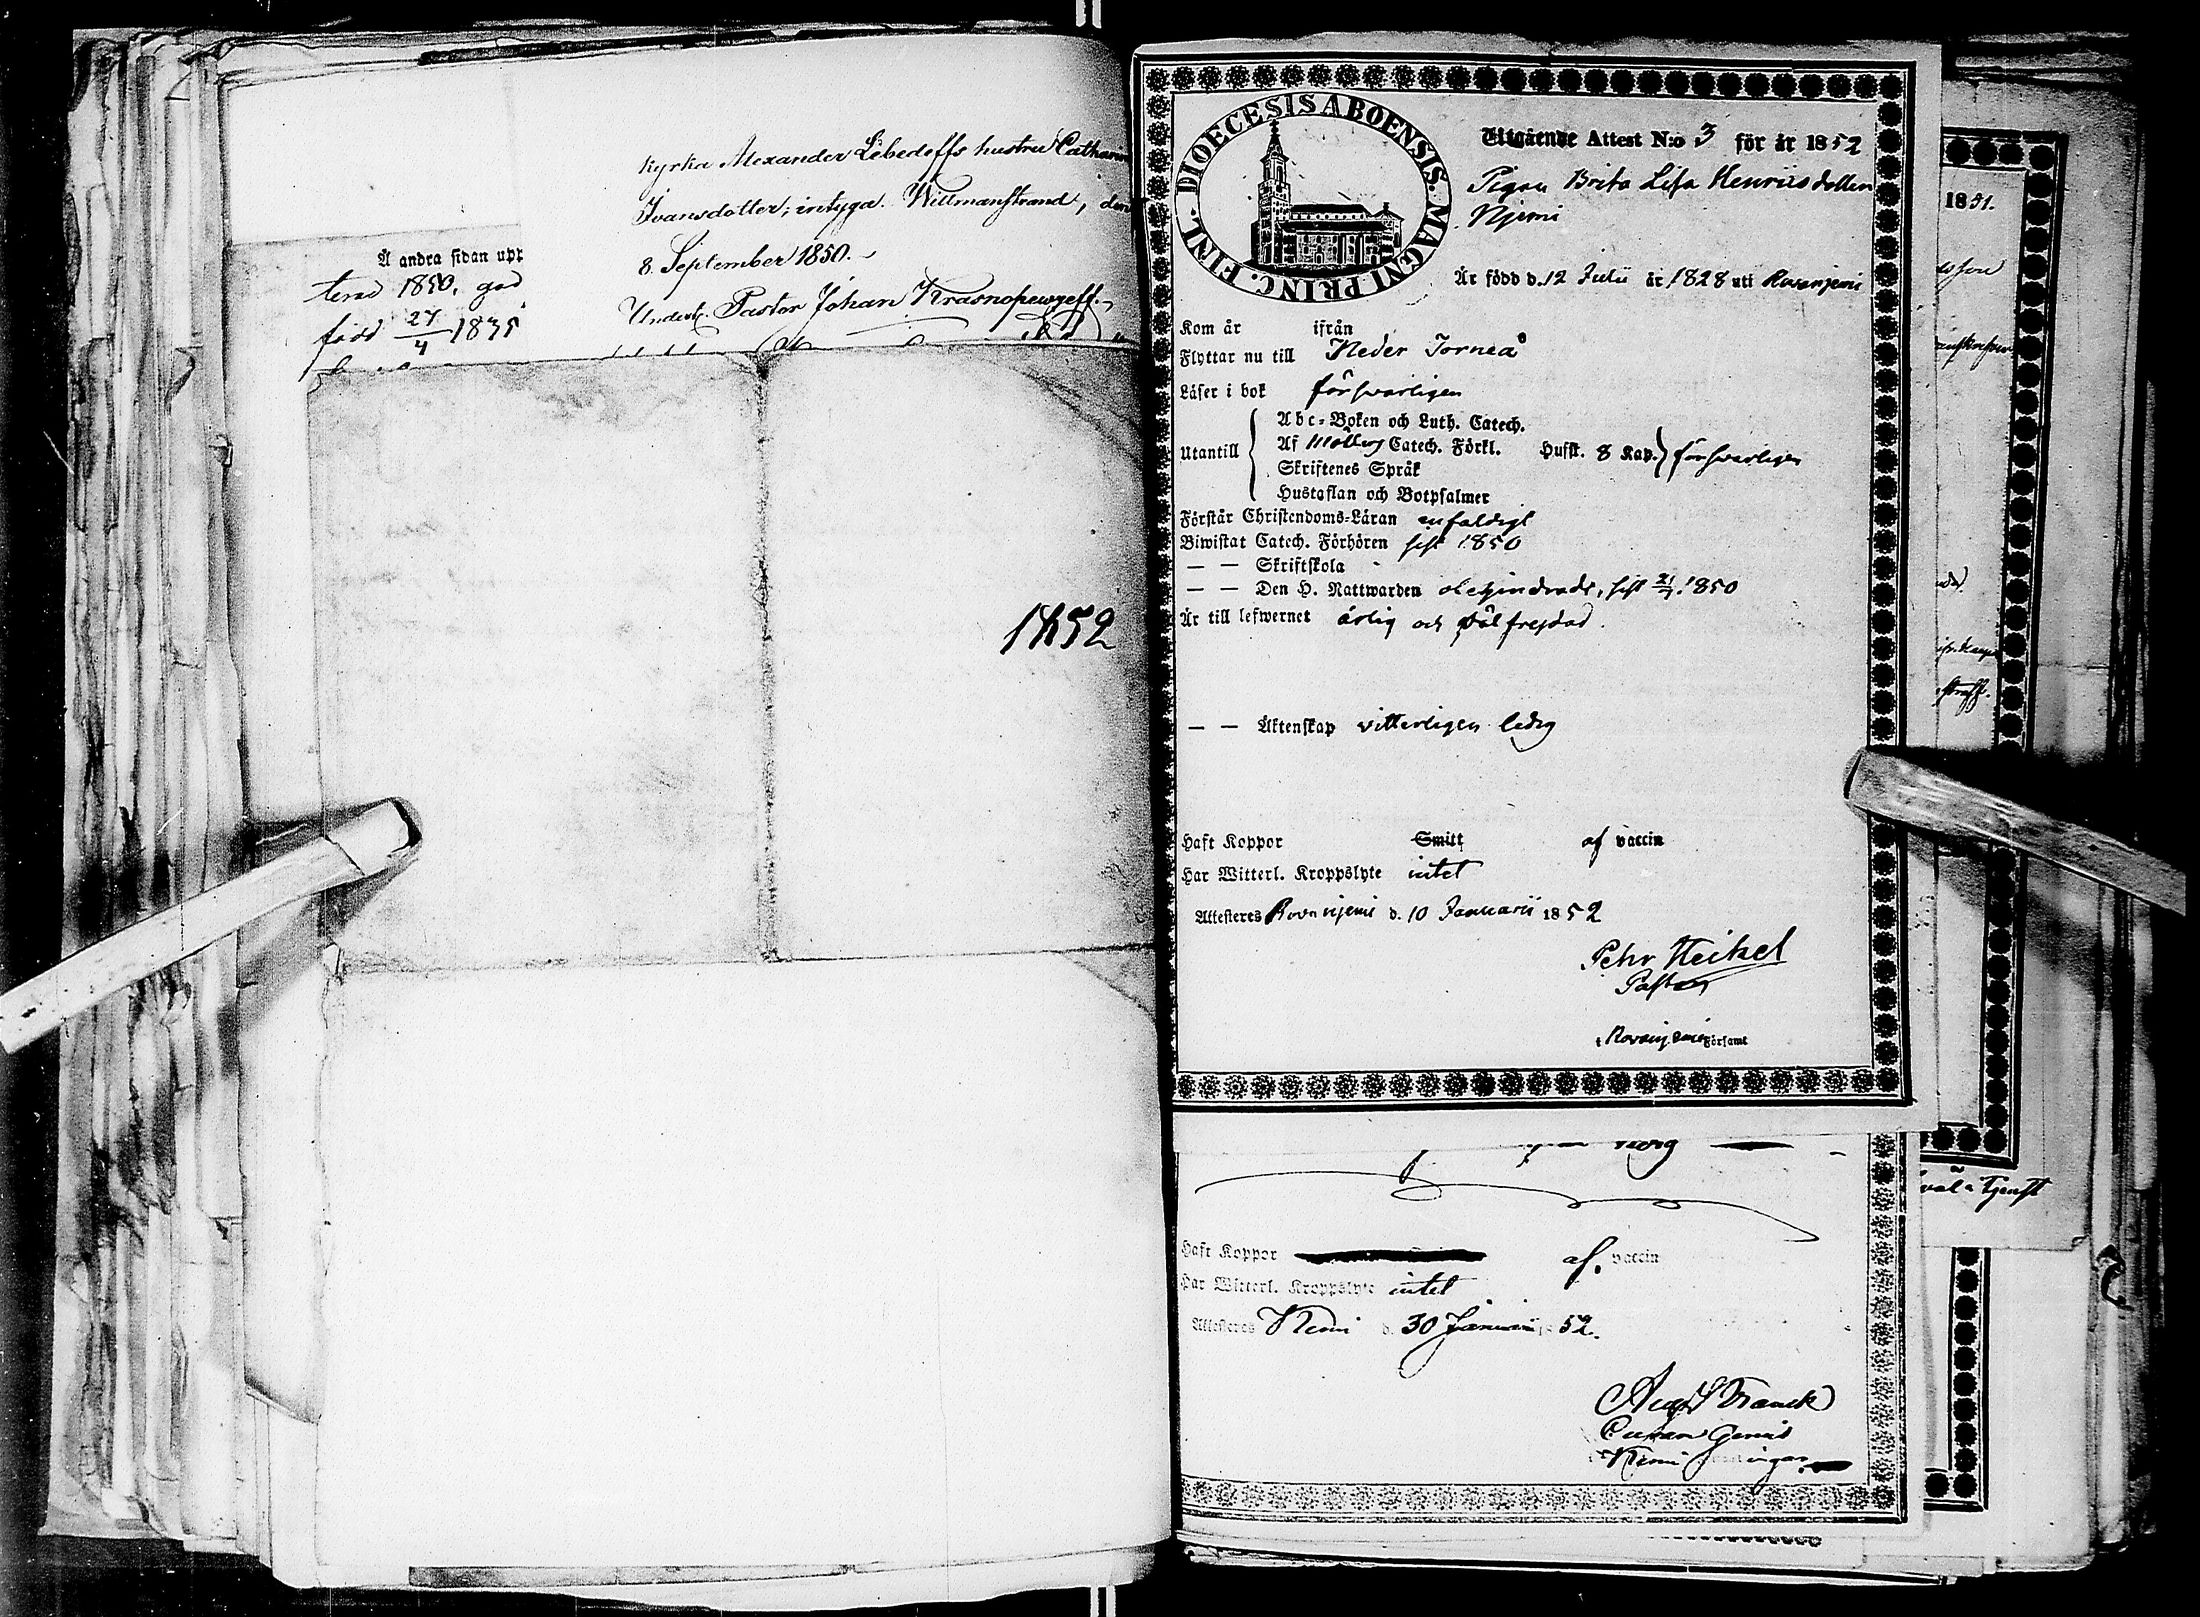 kyrka Alexander Lebedeffs hustru Cathar
Ivansdotter, intyga. Willmanstrand, den
8. September 1850.
Underst. Pastor Johan Krasnopewzeff.
Å andra sidan upp
1850. god
född 27/4 1835
1852
DIOECESIS ABOENSIS. MAGNI PRINC. FINL.
Utgående Attest N:o 3 för år 1852
Pigan Brita Lisa Henriksdotter
Njemi
Är född d. 12 Julii år 1828 uti Rovanjemi
Kom år ifrån
Flyttar nu till Neder Torneå
Läser i bok försvarligen
Utantill
Abc-Boken och Luth. Catech.
Af Möllers Catech. Förkl. Husst. 8 Kap. försvarligen
Skriftenes Språk
Hustaflan och Botpsalmer
Förstår Christendoms-Läran enfaldigt
Biwistat Catech. Förhören sist 1850
— — Skriftskola
— — Den H. Nattwarden ohehindrad, sist 1850
Är till lefwernet ärlig och väl frejdad.
— — Äktenskap vitterligen ledig
Haft Koppor Smitt af vaccin
Har Witterl. Kroppslyte intet
Attesteras Rovanjemi d. 10 Januarii 1852
Pehr Heikel
Pastor
i Rovanjemi Församl
Haft Koppor af. vaccin
Har Witterl. Kroppslyte intet
Attesteras Kemi d. 30 Januarii 52.
Aug. Franck
Kemi
1851.
tjenst